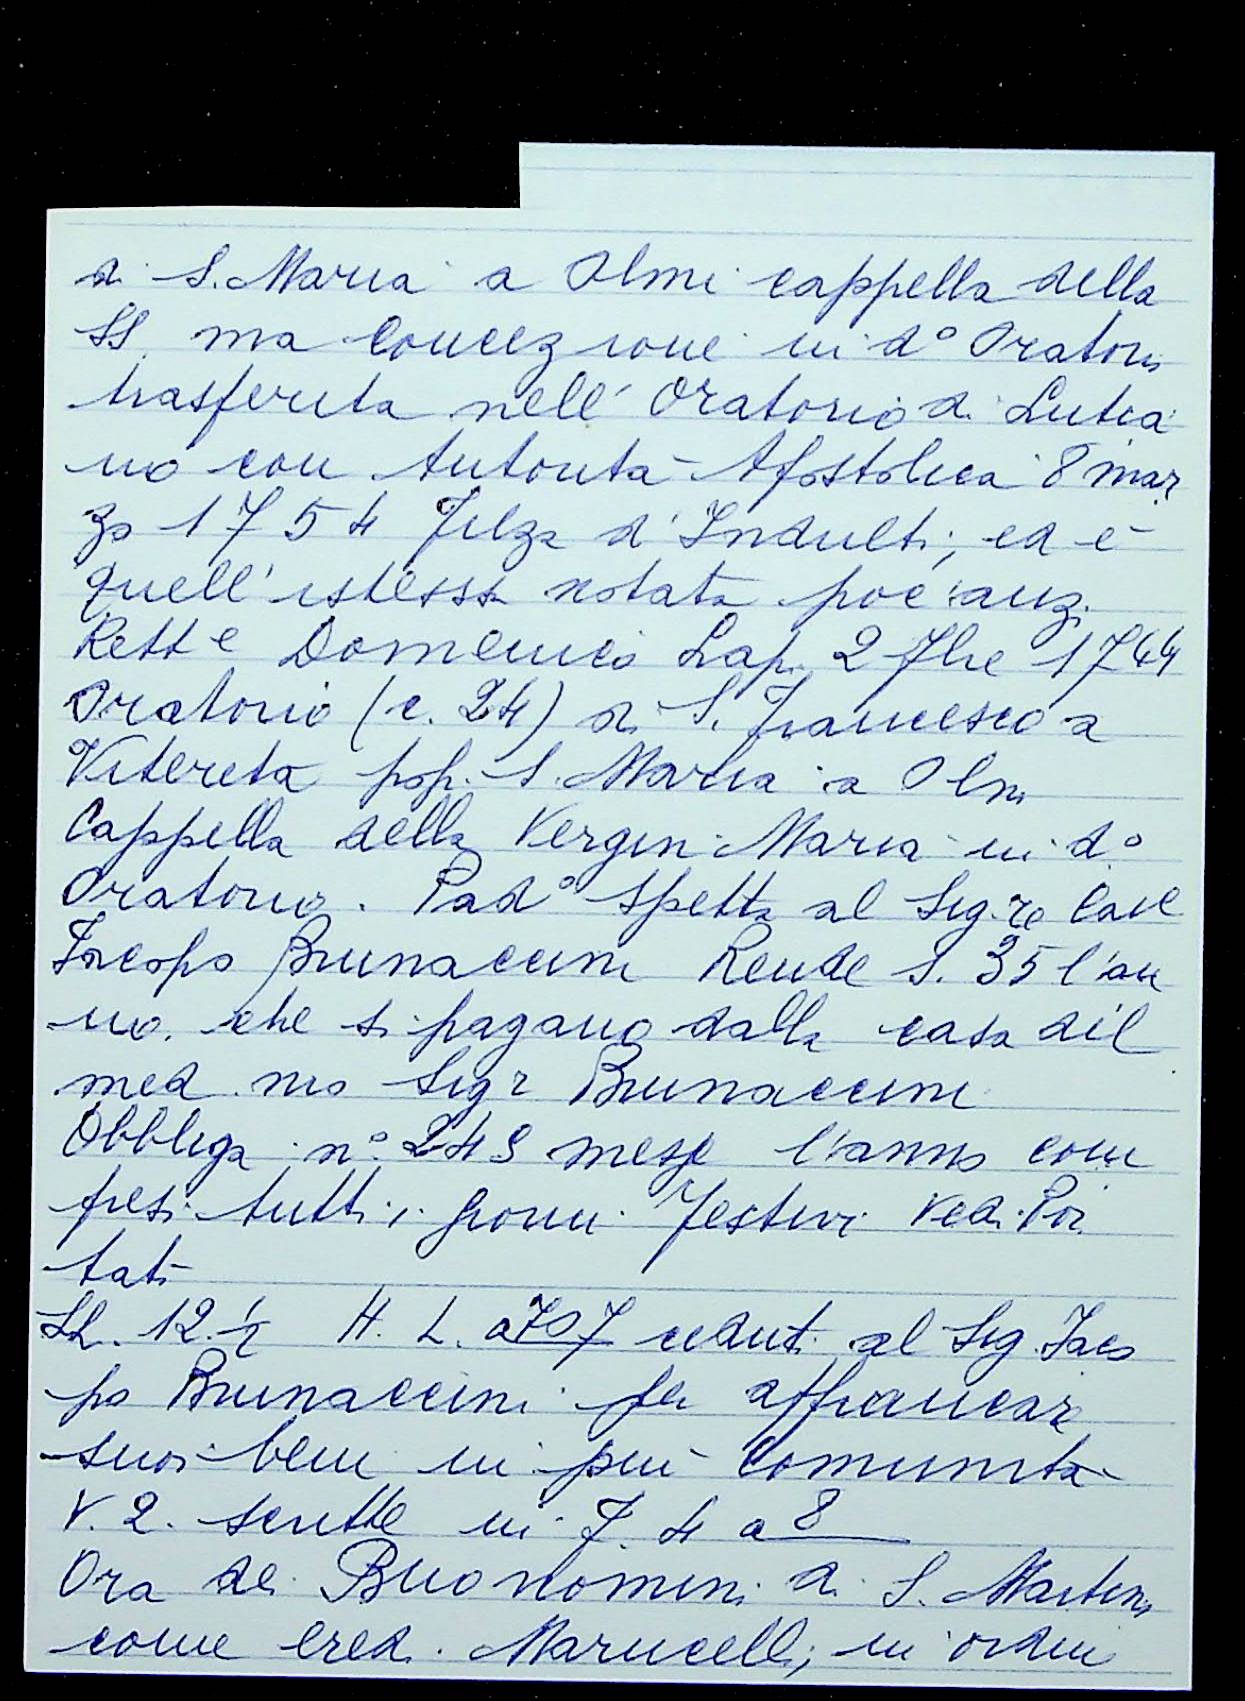 di S. Maria a Olmi cappella della
SS.ma Concezione in d° Oratorio
trasferita nell' Oratorio di Lutia
no con Autorità Apostolica 8 mar
zo 1754 Filza d'Indulti; ed è
quell'istessa notata poc'anzi
Rett e Domenico Lapi 2 7bre 1744
Oratorio (c. 24) di S. Francesco a
Vitereta pop. S. Maria a Olmi
Cappella della Vergin Maria in d°
Oratorio. Pad° Spetta al Sig.re Cave
Jacopo Brunaccini Rende S. 35 l'an
no. che si pagano dalla casa del
med mo Sigr Brunaccini
Obbliga n° 249 messe l'anno com
presi tutti i giorni festivi vedi Por
tati
LL. 12.½ H. L. a 707 ceduti al Sig. Jaco
po Brunaccini per affrancar
suoi beni in più Comunità
V. 2. scritte in F. 4 a 8
Ora dei Buonomini di S. Martino
come eredi Marucelli; in ordin